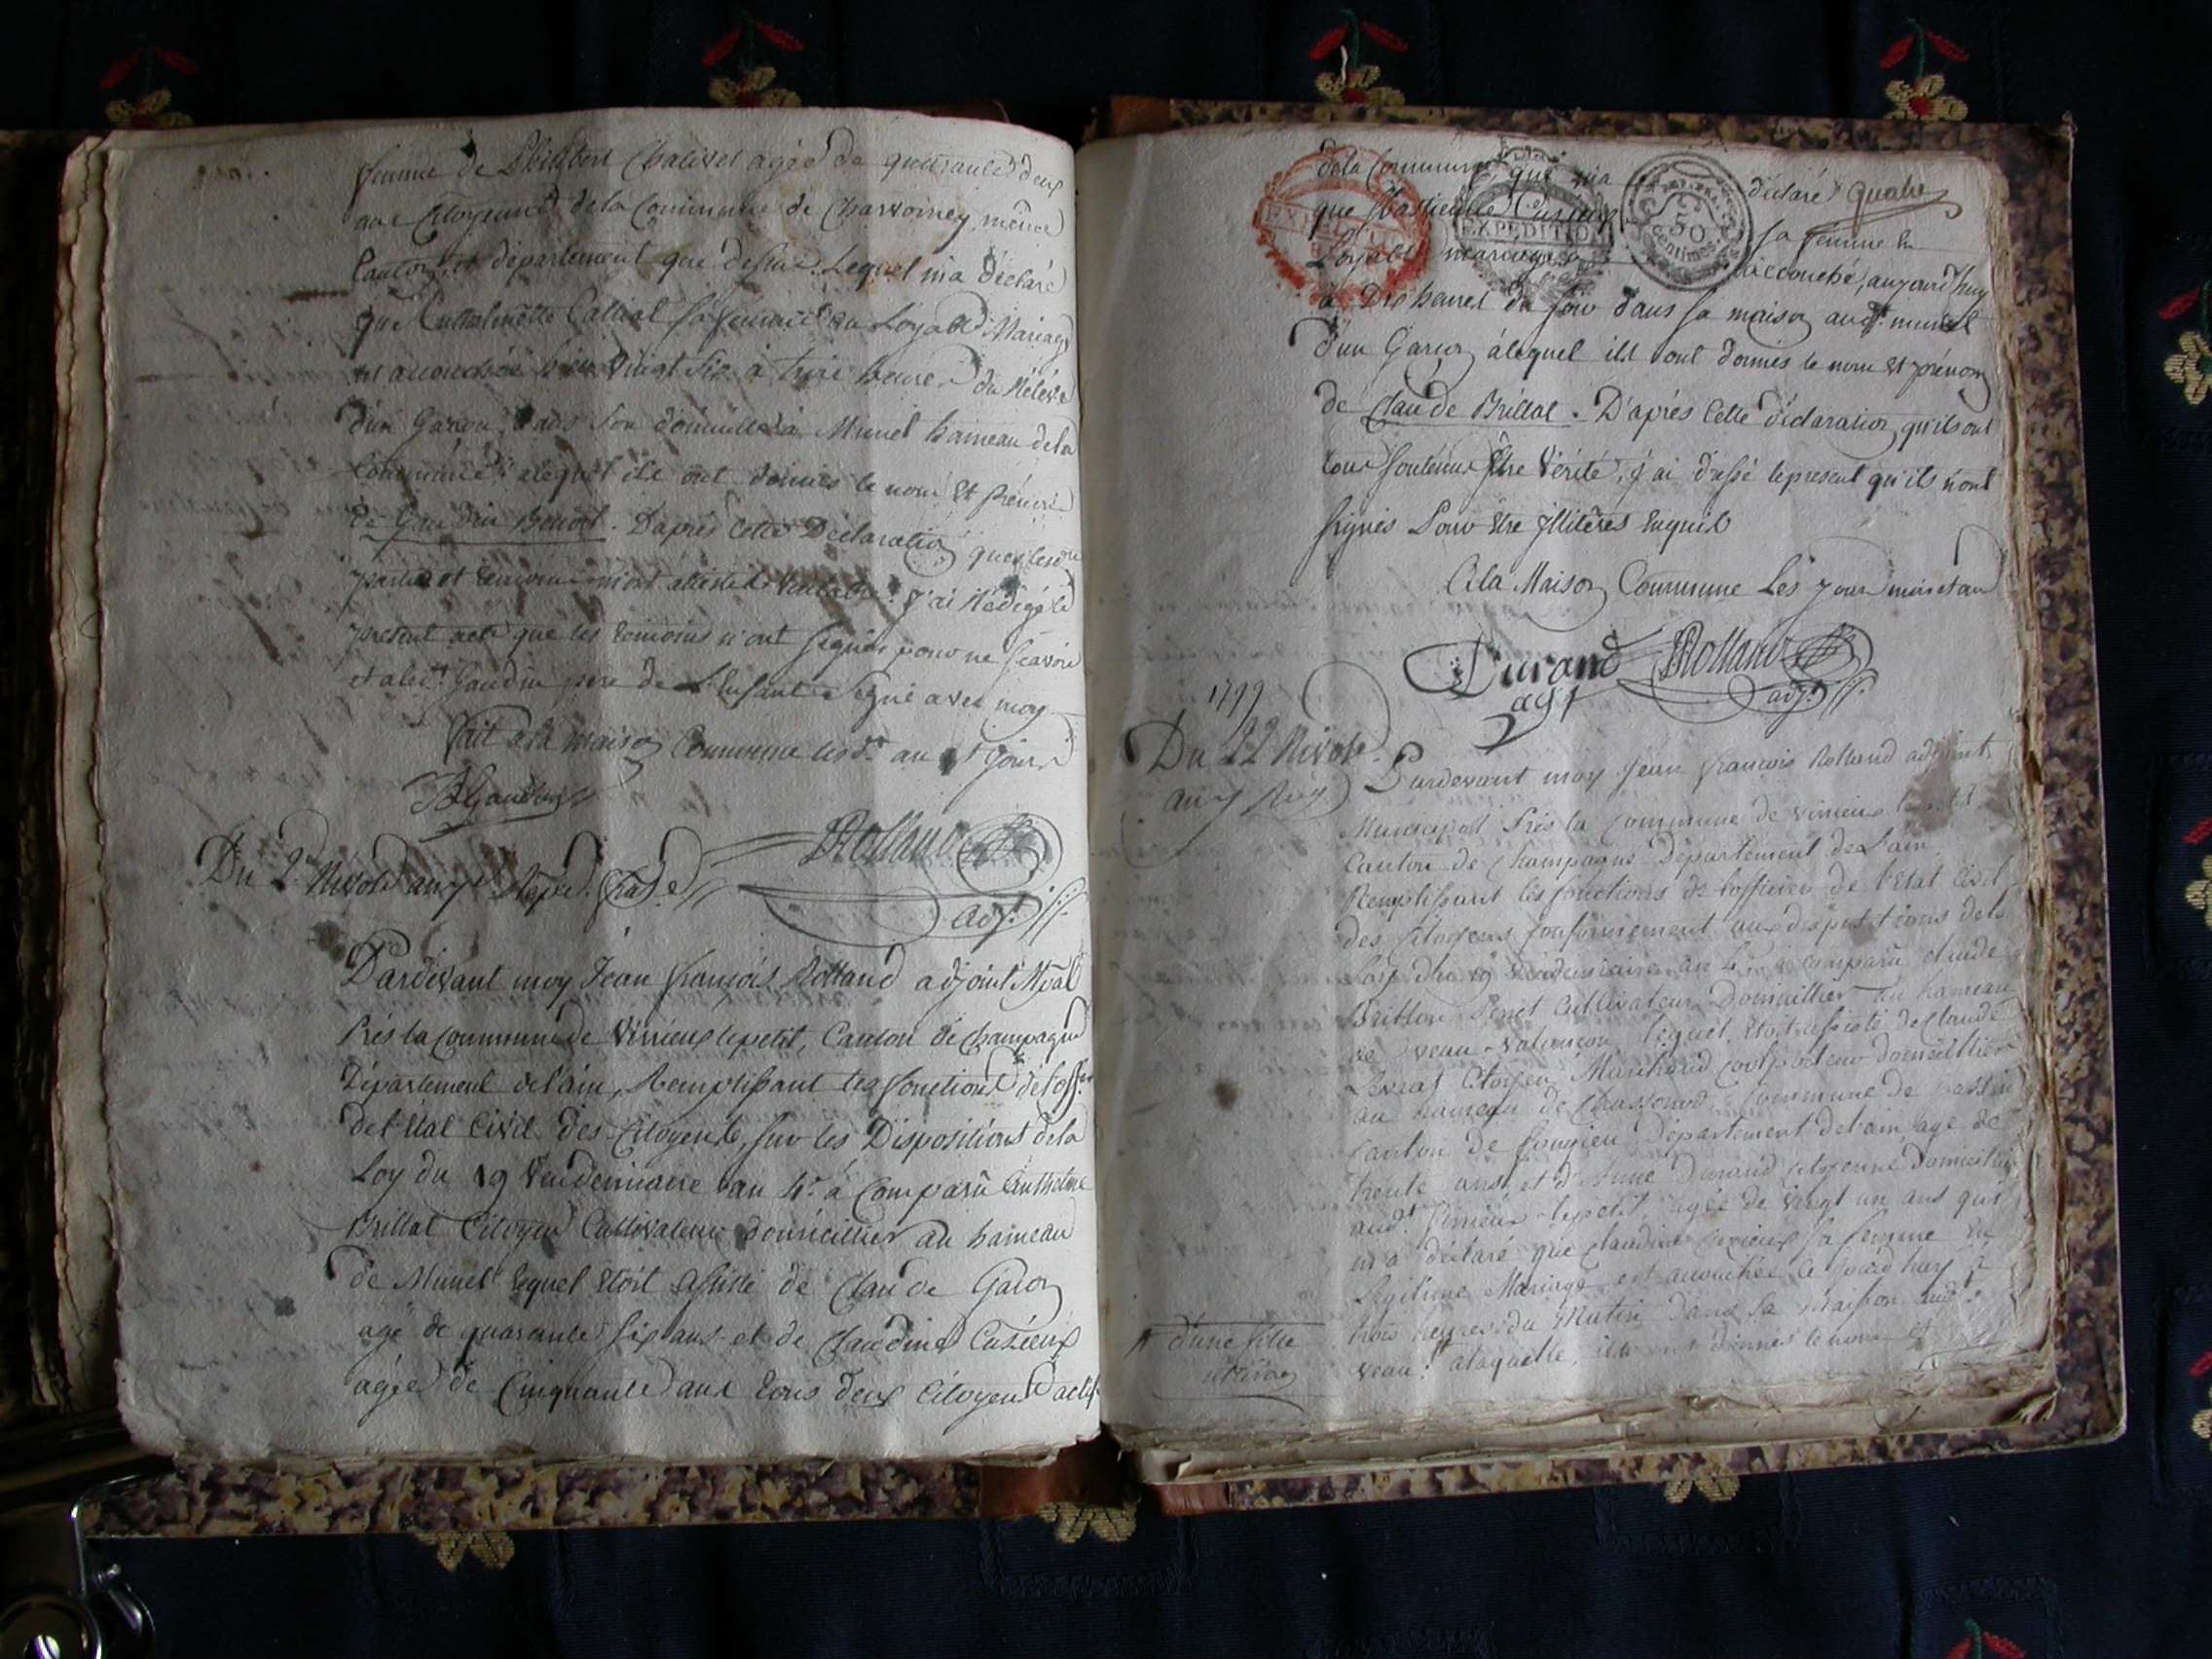 femme de Philibert Chalivet agée de quarante deux
ans Citoyenne de la Commune de Charvornay, même
Canton et département que dessus. Lequel m'a déclaré
que Anthelmette Calliat sa femme en Loyable Mariage
est accouchée hier Vingt Six à trois heures du
d'un Garçon, dans son domicille à Munet hameau de la
Commune alequel ils ont donnés le nom et prénom
de Gaudin Benoit. D'apres Cette Déclaration que les
parties et témoins m'ont attesté véritable. J'ai Redigé le
présent acte que les témoins n'ont signés pour ne scavoir
et a led.t Gaudin père de L'Enfant Signé avec moy
fait a la maison Commune lesd.ts an et jour
BGaudin
JRolland
adj.t
Du 2 Nivose an 7e Rép.
Pardevant moy Jean françois Rolland adjoint Mpal
Près la Commune de Virieux le petit, Canton de Champagne
Département de l'ain, Remplissant les fonctions de l'off.er
de l'Etat Civil des Citoyens, sur les Dispositions de la
Loy du 19 Vendemiaire an 4e a Comparû Anthelme
Brillat Citoyen Cultivateur domicillier au hameau
de Munet lequel Etoit assisté de Claude Garon
agé de quarante six ans et de Claudine Cusieux
agée de Cinquante ans tous deux Citoyens actifs
de la Commune que m'a déclaré quatre
que Cusieux sa femme en
Loyable mariage a accouché, aujourd'huy
à Dix heures du soir dans sa maison aud.t munet
d'un Garçon àlequel ils ont donnés le nom et prénom
de Claude Brillat. D'après Cette déclaration qu'ils ont
tous soutenus Etre Vérité, j'ai dressé le present qu'ils n'ont
signés Pour Etre Illitérés Enquis
A la Maison Commune Les jour mois et an
EXPÉDITION
50
centimes
Durand
agt
JRolland
adj.t
1799
Du 22 Nivose
an 7 Rep
Pardevant moy Jean François Rolland adjoint
Municipal Près la Commune de Virieux le petit
Canton de Champagne Département de L'ain
Remplissant les fonctions de l'officier de l'Etat Civil
des Citoyens Conformement aux dispositions de la
Loy du 19 Vendemiaire an 4e a comparû Claude
Brillon Cultivateur Domicillier au hameau
de Lequel Etoit assisté de Claude
Citoyen Marchand colporteur domicillier
au hameau de Chassonod Commune de passin
Canton de Songieu Département de l'ain agé de
trente ans et d'Anne Durand Citoyenne Domiciliée
aud.t Virieux le petit, agée de vingt un ans qui
m'a déclaré que Claudine Cusieux sa femme en
Légitime Mariage est accouchée Ce jourd'huy à
trois heures du Matin dans sa Maison aud.t
d'une fille
veau. alaquelle ils ont donnés le nom et